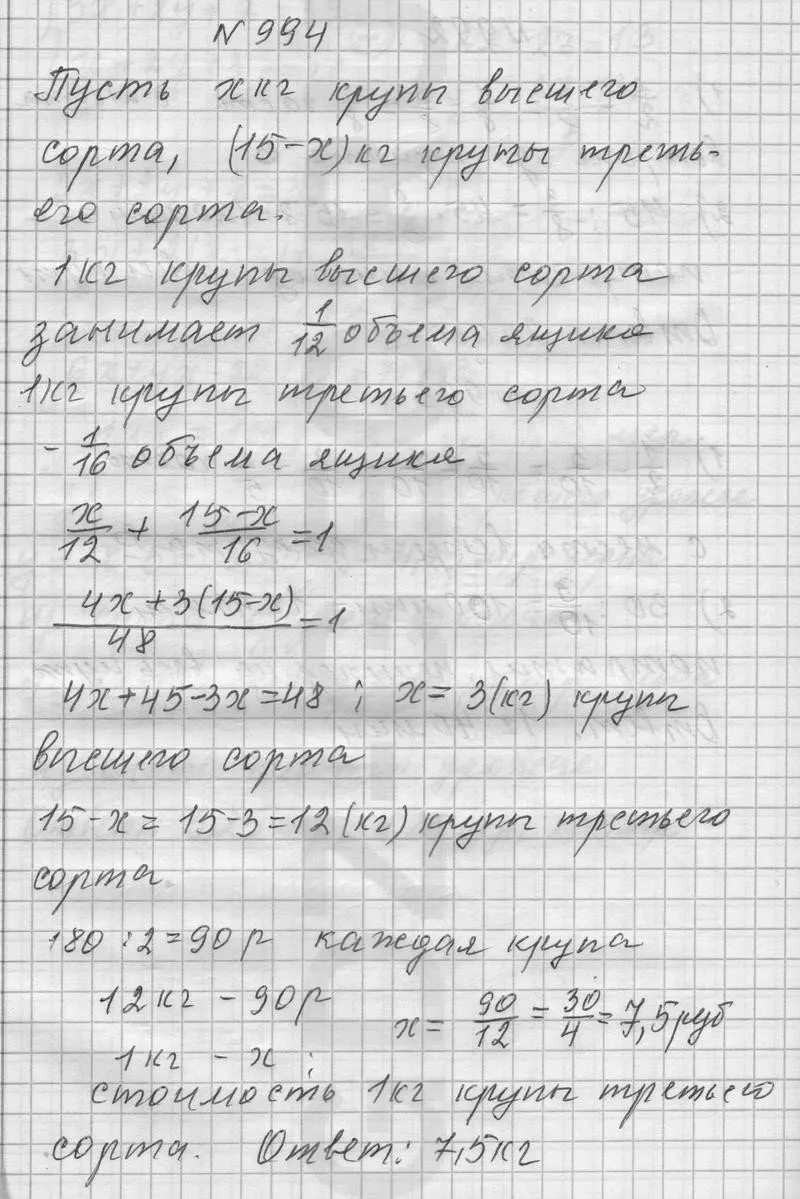 N 994
Пусть x кг крупы высшего
сорта, (15-x) кг крупы треть-
его сорта.
1 кг крупы высшего сорта
занимает 1/12 объема ящика
1 кг крупы третьего сорта
- 1/16 объема ящика
x/12 + 15-x/16 = 1
4x+3(15-x)/48 = 1
4x+45-3x=48 ; x= 3(кг) крупы
высшего сорта
15-x = 15-3=12(кг) крупы третьего
сорта
180 : 2 = 90 р каждая крупа
12 кг - 90 р
1 кг - x ; x = 90/12 = 30/4 = 7,5 руб
стоимость 1 кг крупы третьего
сорта. Ответ: 7,5 кг